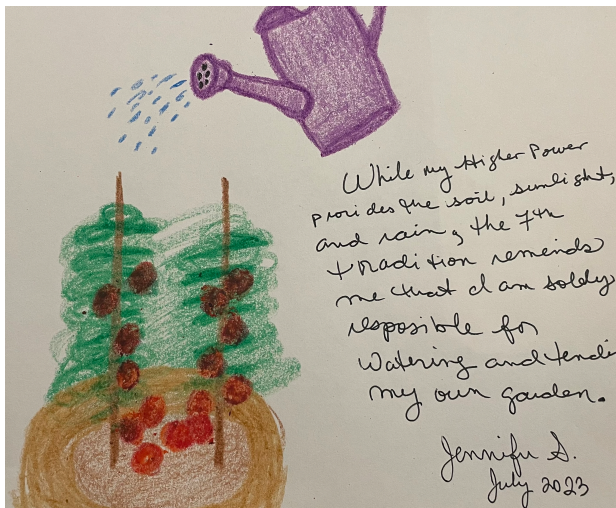 While my Higher Power
provides the soil, sunlight,
and rain, the 7th
tradition reminds
me that I am soldy
resposible for
Watering and tendi
my own garden.
Jennifer S.
July 2023